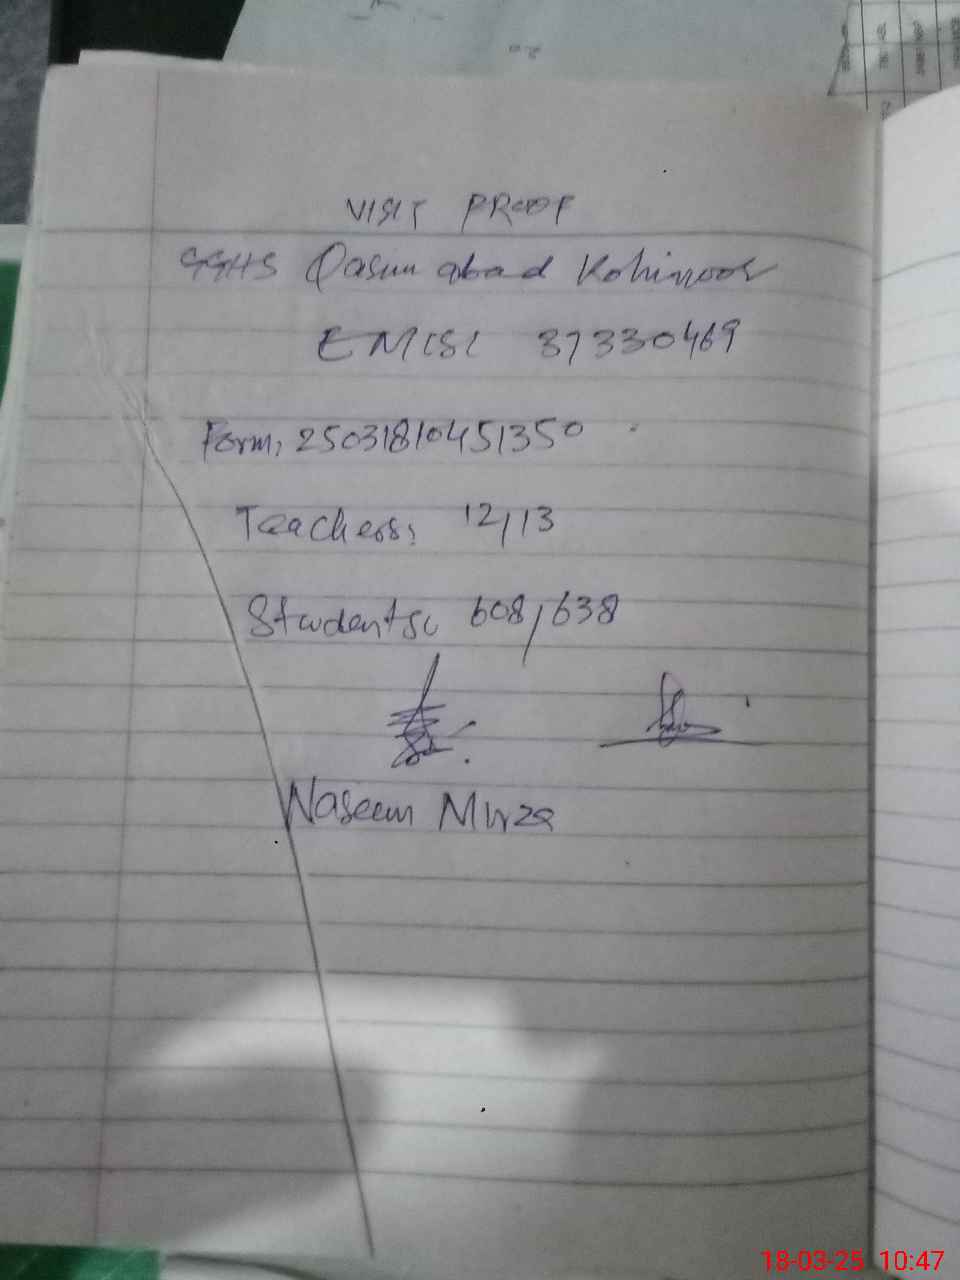 VISIT PROOF
GGHS Qasim abad Kohinoor
EMIS: 37330469
Form: 25031810451350
Teachers: 12/13
Students: 608/638
Naseem Mirza
18-03-25 10:47